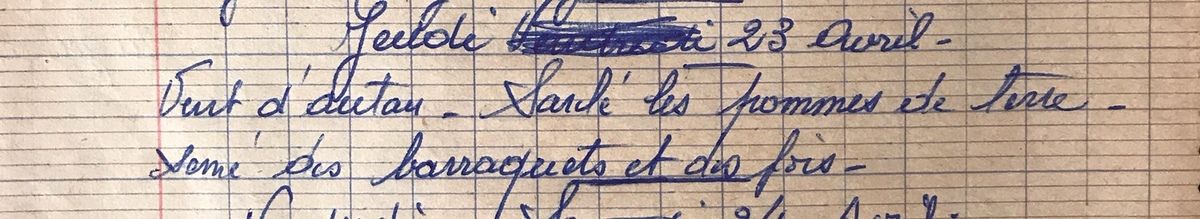 Jeudi 23 Avril -
Vent d'autan - Sarclé les pommes de terre -
Semé des barraquets et des fois -